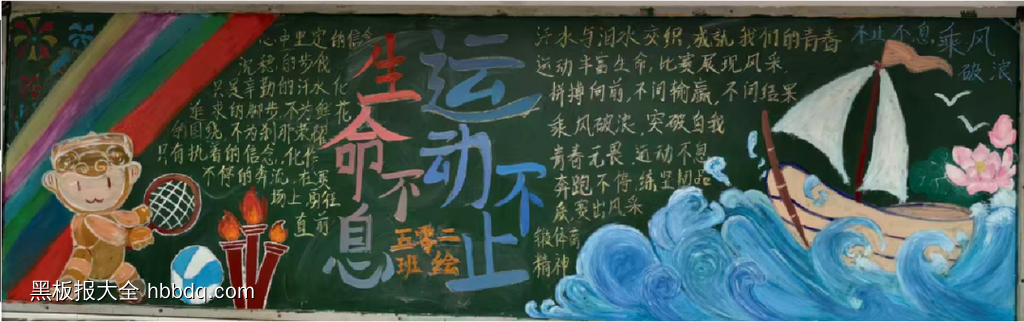 心中坚定的信念
沉稳的步伐
只是辛勤的汗水化
追求的脚步,不为鲜花
的围绕,不为刹那荣耀
只有执着的信念,化作
不停的奔流,在赛场上
勇往直前
生命不息
运动不止
五零二
班绘
汗水与泪水交织,成就我们的青春
运动丰富生命,比赛展现风采
拼搏向前,不问输赢,不问结果
乘风破浪,突破自我
青春无畏,运动不息
奔跑不停,练坚韧品
质赛出风采
锻体育
精神
不止不息,乘风
破浪
黑板报大全 hbbdq.com